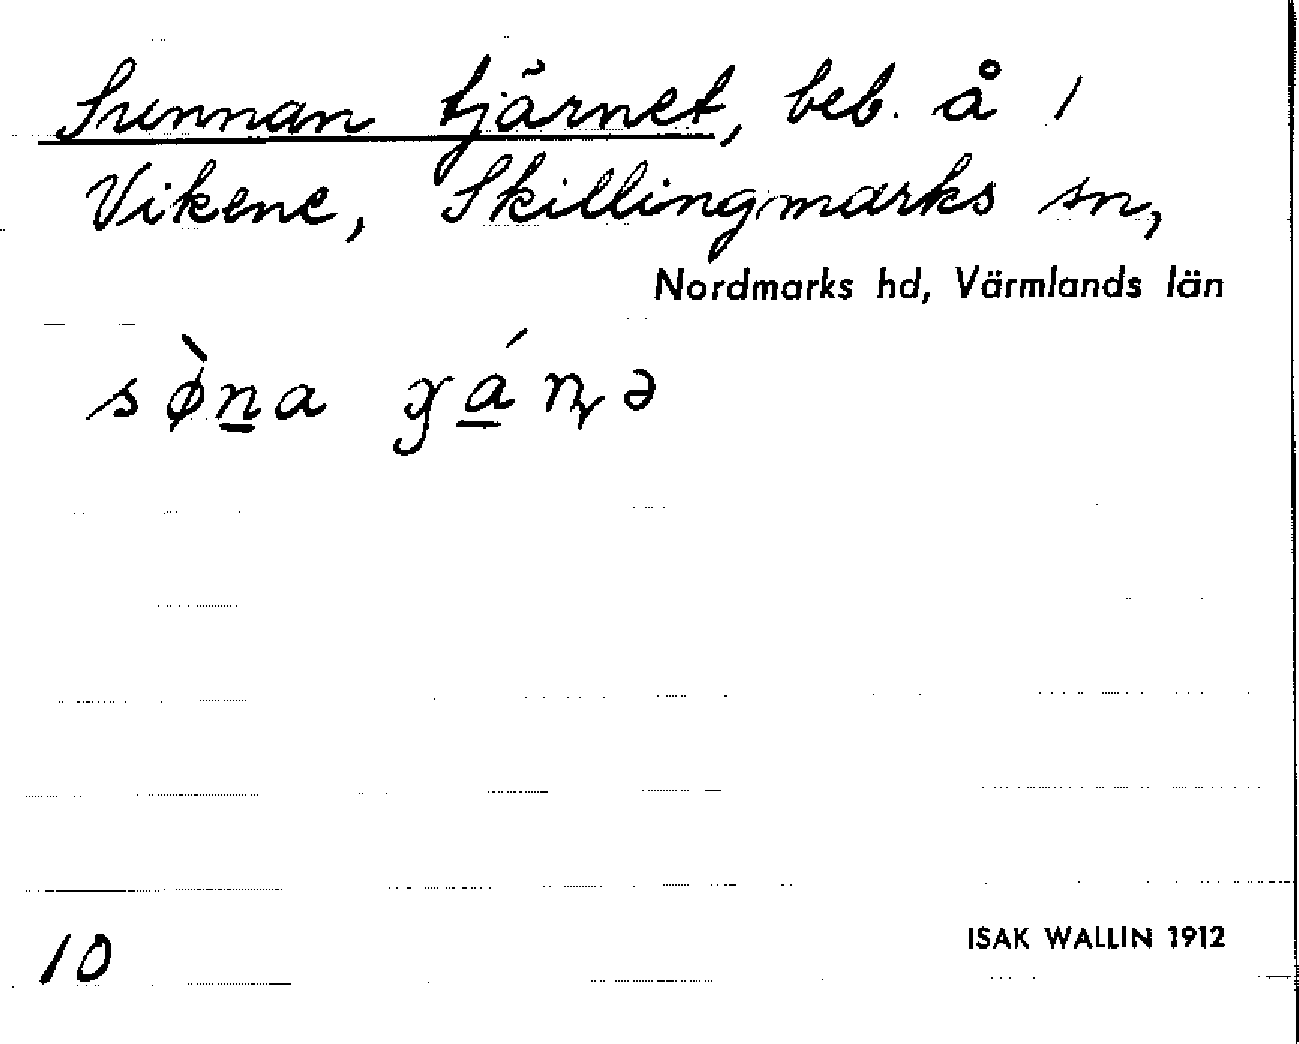 Sunnan tjärnet, beb. å 1
Vikene, Skillingmarks sn,
Nordmarks hd, Värmlands län
10
ISAK WALLIN 1912